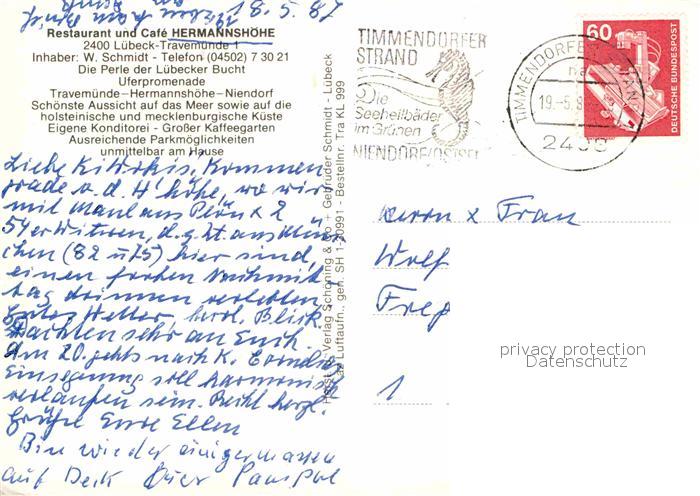 18.5.87
Restaurant und Café HERMANNSHÖHE
2400 Lübeck-Travemünde 1
Inhaber: W. Schmidt - Telefon (04502) 7 30 21
Die Perle der Lübecker Bucht
Uferpromenade
Travemünde–Hermannshöhe–Niendorf
Schönste Aussicht auf das Meer sowie auf die
holsteinische und mecklenburgische Küste
Eigene Konditorei - Großer Kaffeegarten
Ausreichende Parkmöglichkeiten
unmittelbar am Hause
Liebe Kommen
grade v. d. H'höhe, wo wir
mit aus Plön x 2
d. z. Zt. aus Mün
chen (82 u 75) hier sind,
einen frohen Nachmit
tag drinnen verlebten.
Gutes Wetter, herrl. Blick.
Dachten sehr an Euch.
Am 20. gehts nach K.
Einsegnung soll harmonisch
verlaufen sein. Recht herzl.
Grüße Eure Ellen
Bin wieder einigermassen
auf Deck Euer
Verlag Schöning & Co + Gebrüder Schmidt - Lübeck
Luftaufn., gen. SH 1-20991 - Bestellnr. Tra KL 999
TIMMENDORFER
STRAND
Die
Seeheilbäder
im Grünen
NIENDORF/OSTSEE
TIMMENDORFER STRAND
19.-5.8
60
DEUTSCHE BUNDESPOST
Herrn x Frau
Wolf
1
privacy protection
Datenschutz